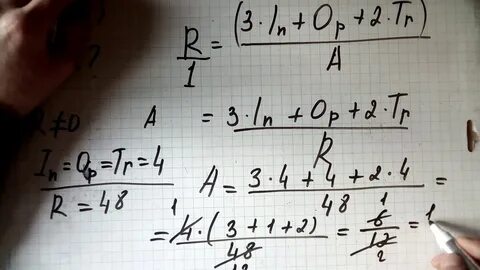 ?
R/1 = (3·In + Op + 2·Tr)/A
R≠0 A = (3·In + Op + 2·Tr)/R
In = Op = Tr = 4
R = 48
A = (3·4 + 4 + 2·4)/48 =
= 4·(3+1+2)/48 = 6/12 = 1
1 12 1 2